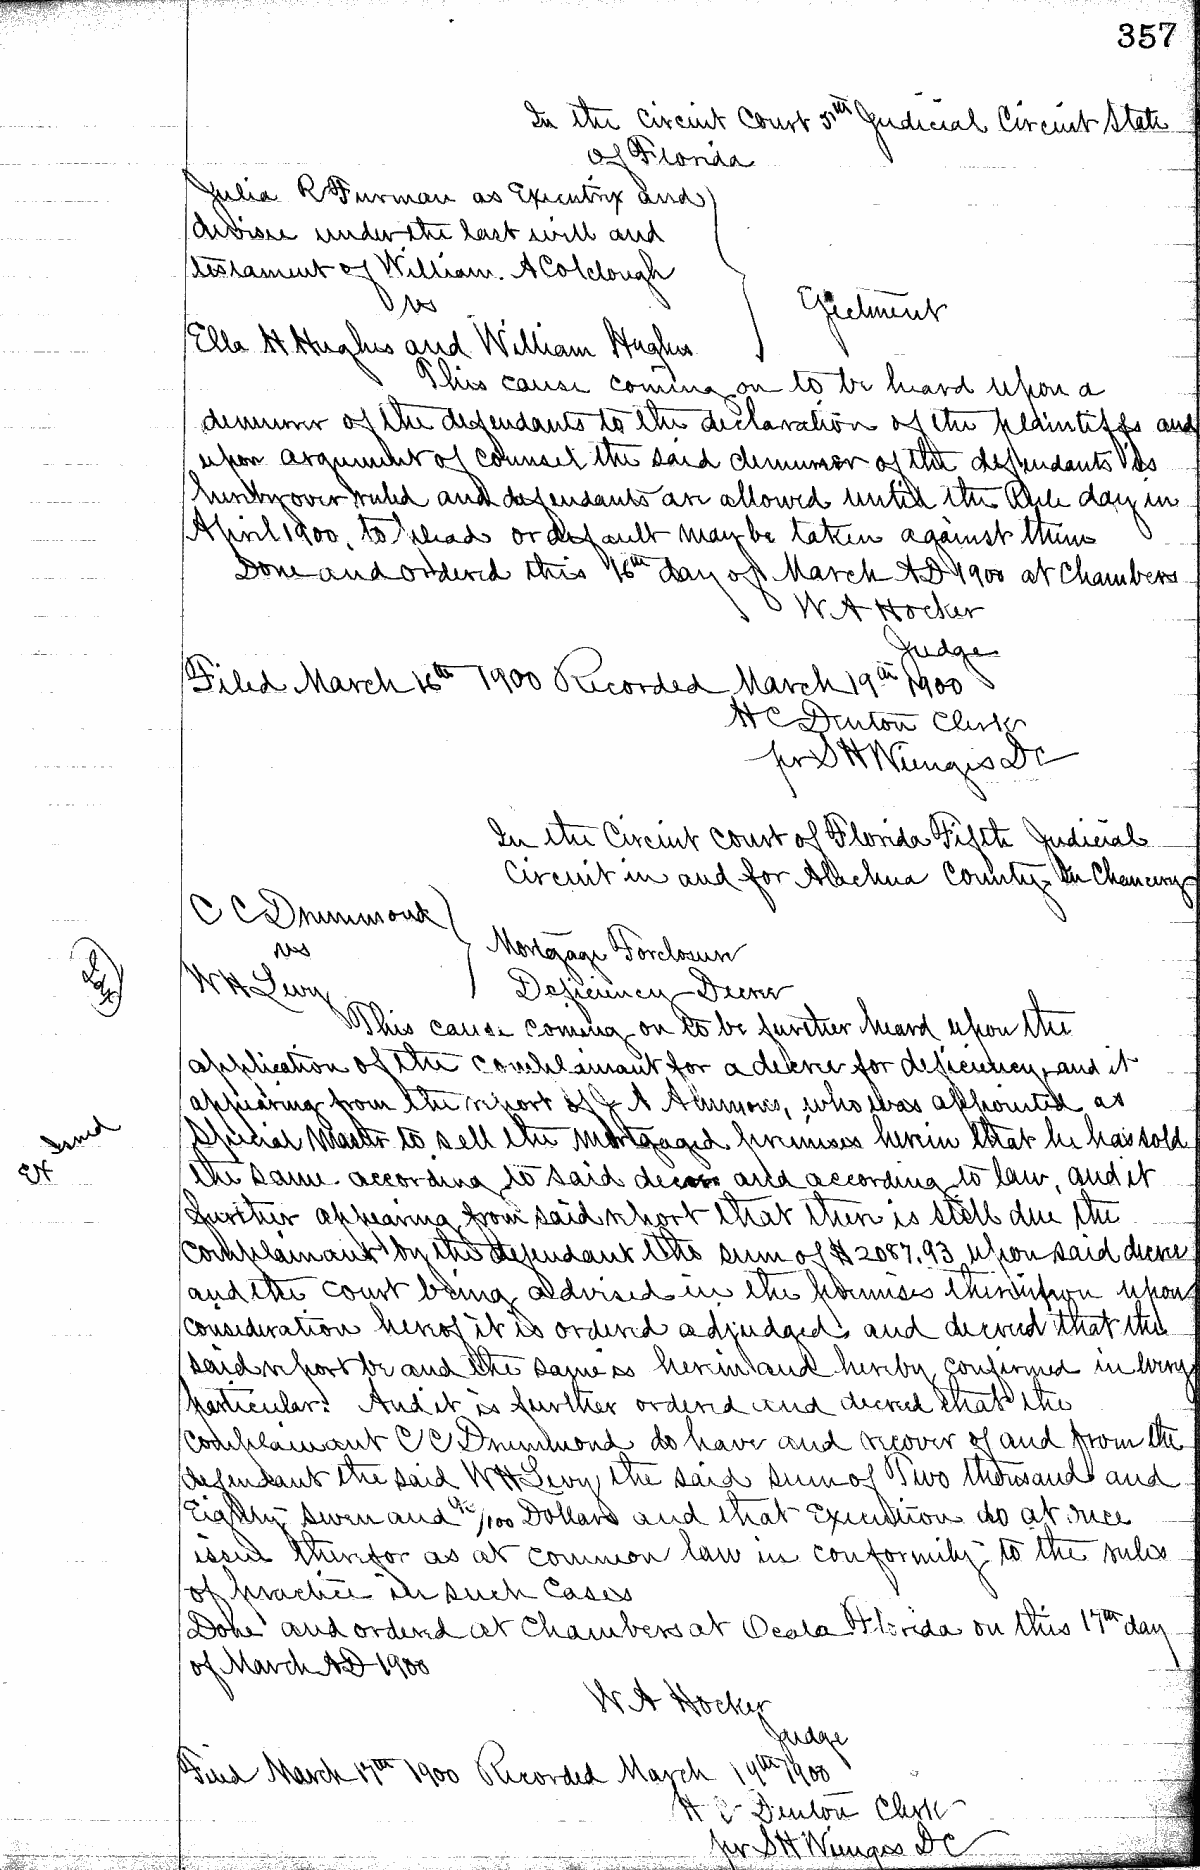 357
In the Circuit Court 5th Judicial Circuit State
of Florida
Julia R Furman as Executrix and
devisee under the last will and
testament of William. A Colclough
vs
Ejectment
Ella H Hughes and William Hughes
This cause coming on to be heard upon a
demurrer of the defendants to the declaration of the plaintiffs and
upon argument of counsel the said demurrer of the defendants is
hereby over ruled and defendants are allowed until the Rule day in
April 1900, to plead or default may be taken against them
Done and ordered this 16th day of March AD 1900 at Chambers
W A Hocker
Judge
Filed March 16th 1900 Recorded March 19th 1900
H C Denton Clerk
per S H Wienges DC
In the Circuit Court of Florida Fifth Judicial
Circuit in and for Alachua County, In Chancery
C C Drummond
vs
Mortgage Foreclosure
W H Levy
Deficiency Decree
This cause coming on to be further heard upon the
application of the complainant for a decree for deficiency, and it
appearing from the report of J A Ammons, who was appointed as
Special Master to sell the mortgaged premises herein that he has sold
Ex Issued
the same according to said decree and according to law, and it
further appearing from said report that there is still due the
complainant by the defendant the sum of $2087.93 upon said decree
and the court being advised in the premises thereupon upon
consideration hereof it is ordered adjudged and decreed that the
said report be and the same is herein and hereby confirmed in every
particular. And it is further ordered and decreed that the
complainant C C Drummond do have and recover of and from the
defendant the said W H Levy the said sum of Two thousand and
Eighty seven and 93/100 Dollars and that Execution do at once
issue therefor as at common law in conformity to the rules
of practice in such Cases
Done and ordered at Chambers at Ocala Florida on this 17th day
of March AD 1900
W A Hocker
Judge
Filed March 17th 1900 Recorded March 19th 1900
H C Denton Clerk
per S H Wienges DC